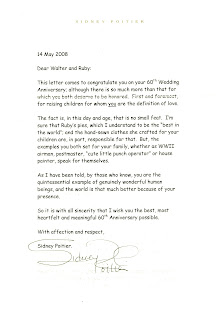 SIDNEY POITIER
14 May 2008
Dear Walter and Ruby:
This letter comes to congratulate you on your 60th Wedding
Anniversary; although there is so much more than that for
which you both deserve to be honored. First and foremost,
for raising children for whom you are the definition of love.
The fact is, in this day and age, that is no small feat. I'm
sure that Ruby's pies, which I understand to be the "best in
the world"; and the hand-sewn clothes she crafted for your
children are, in part, responsible for that. But, the
examples you both set for your family, whether as WWII
airman, postmaster, "cute little punch operator" or house
painter, speak for themselves.
As I have been told, by those who know, you are the
quintessential example of genuinely wonderful human
beings, and the world is that much better because of your
presence.
So it is with all sincerity that I wish you the best, most
heartfelt and meaningful 60th Anniversary possible.
With affection and respect,
Sidney Poitier
Sidney
Poitier